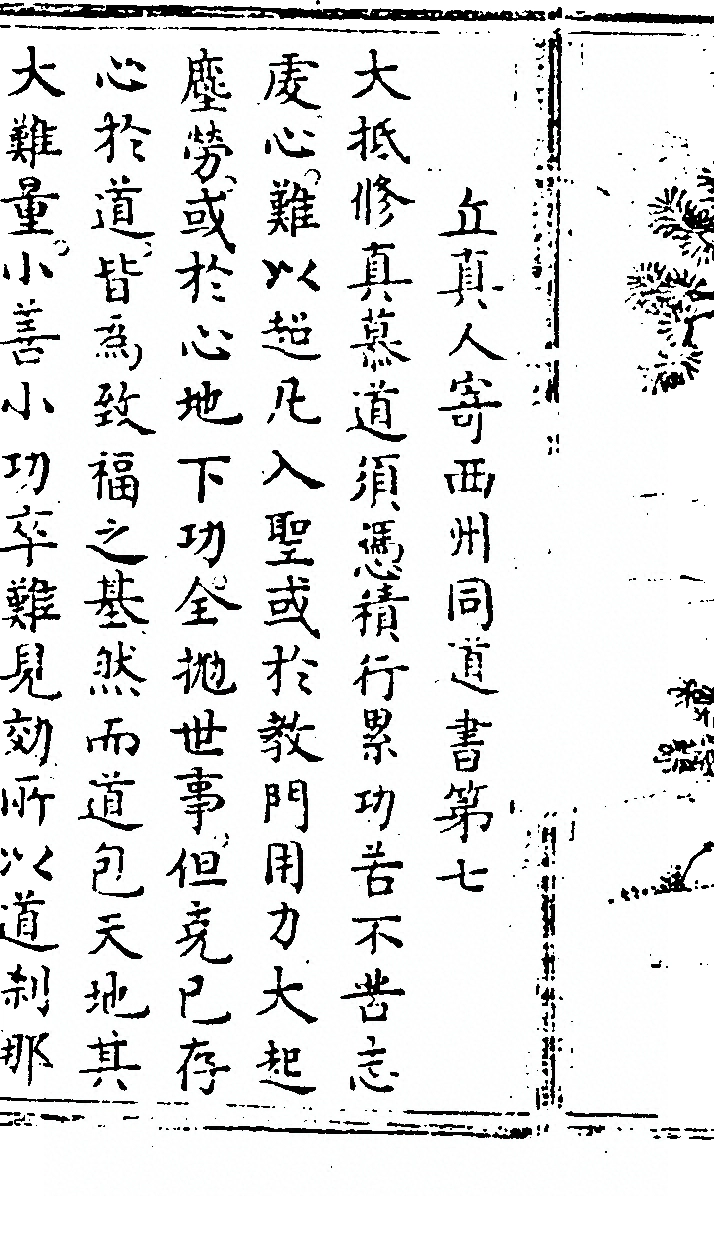 丘真人寄西州同道書第七
大抵修真慕道須憑積行累功若不苦志
虔心難以超凡入聖或於教門用力大起
塵勞或於心地下功全拋世事但克己存
心於道皆為致福之基然而道包天地其
大難量小善小功卒難見効所以道刹那